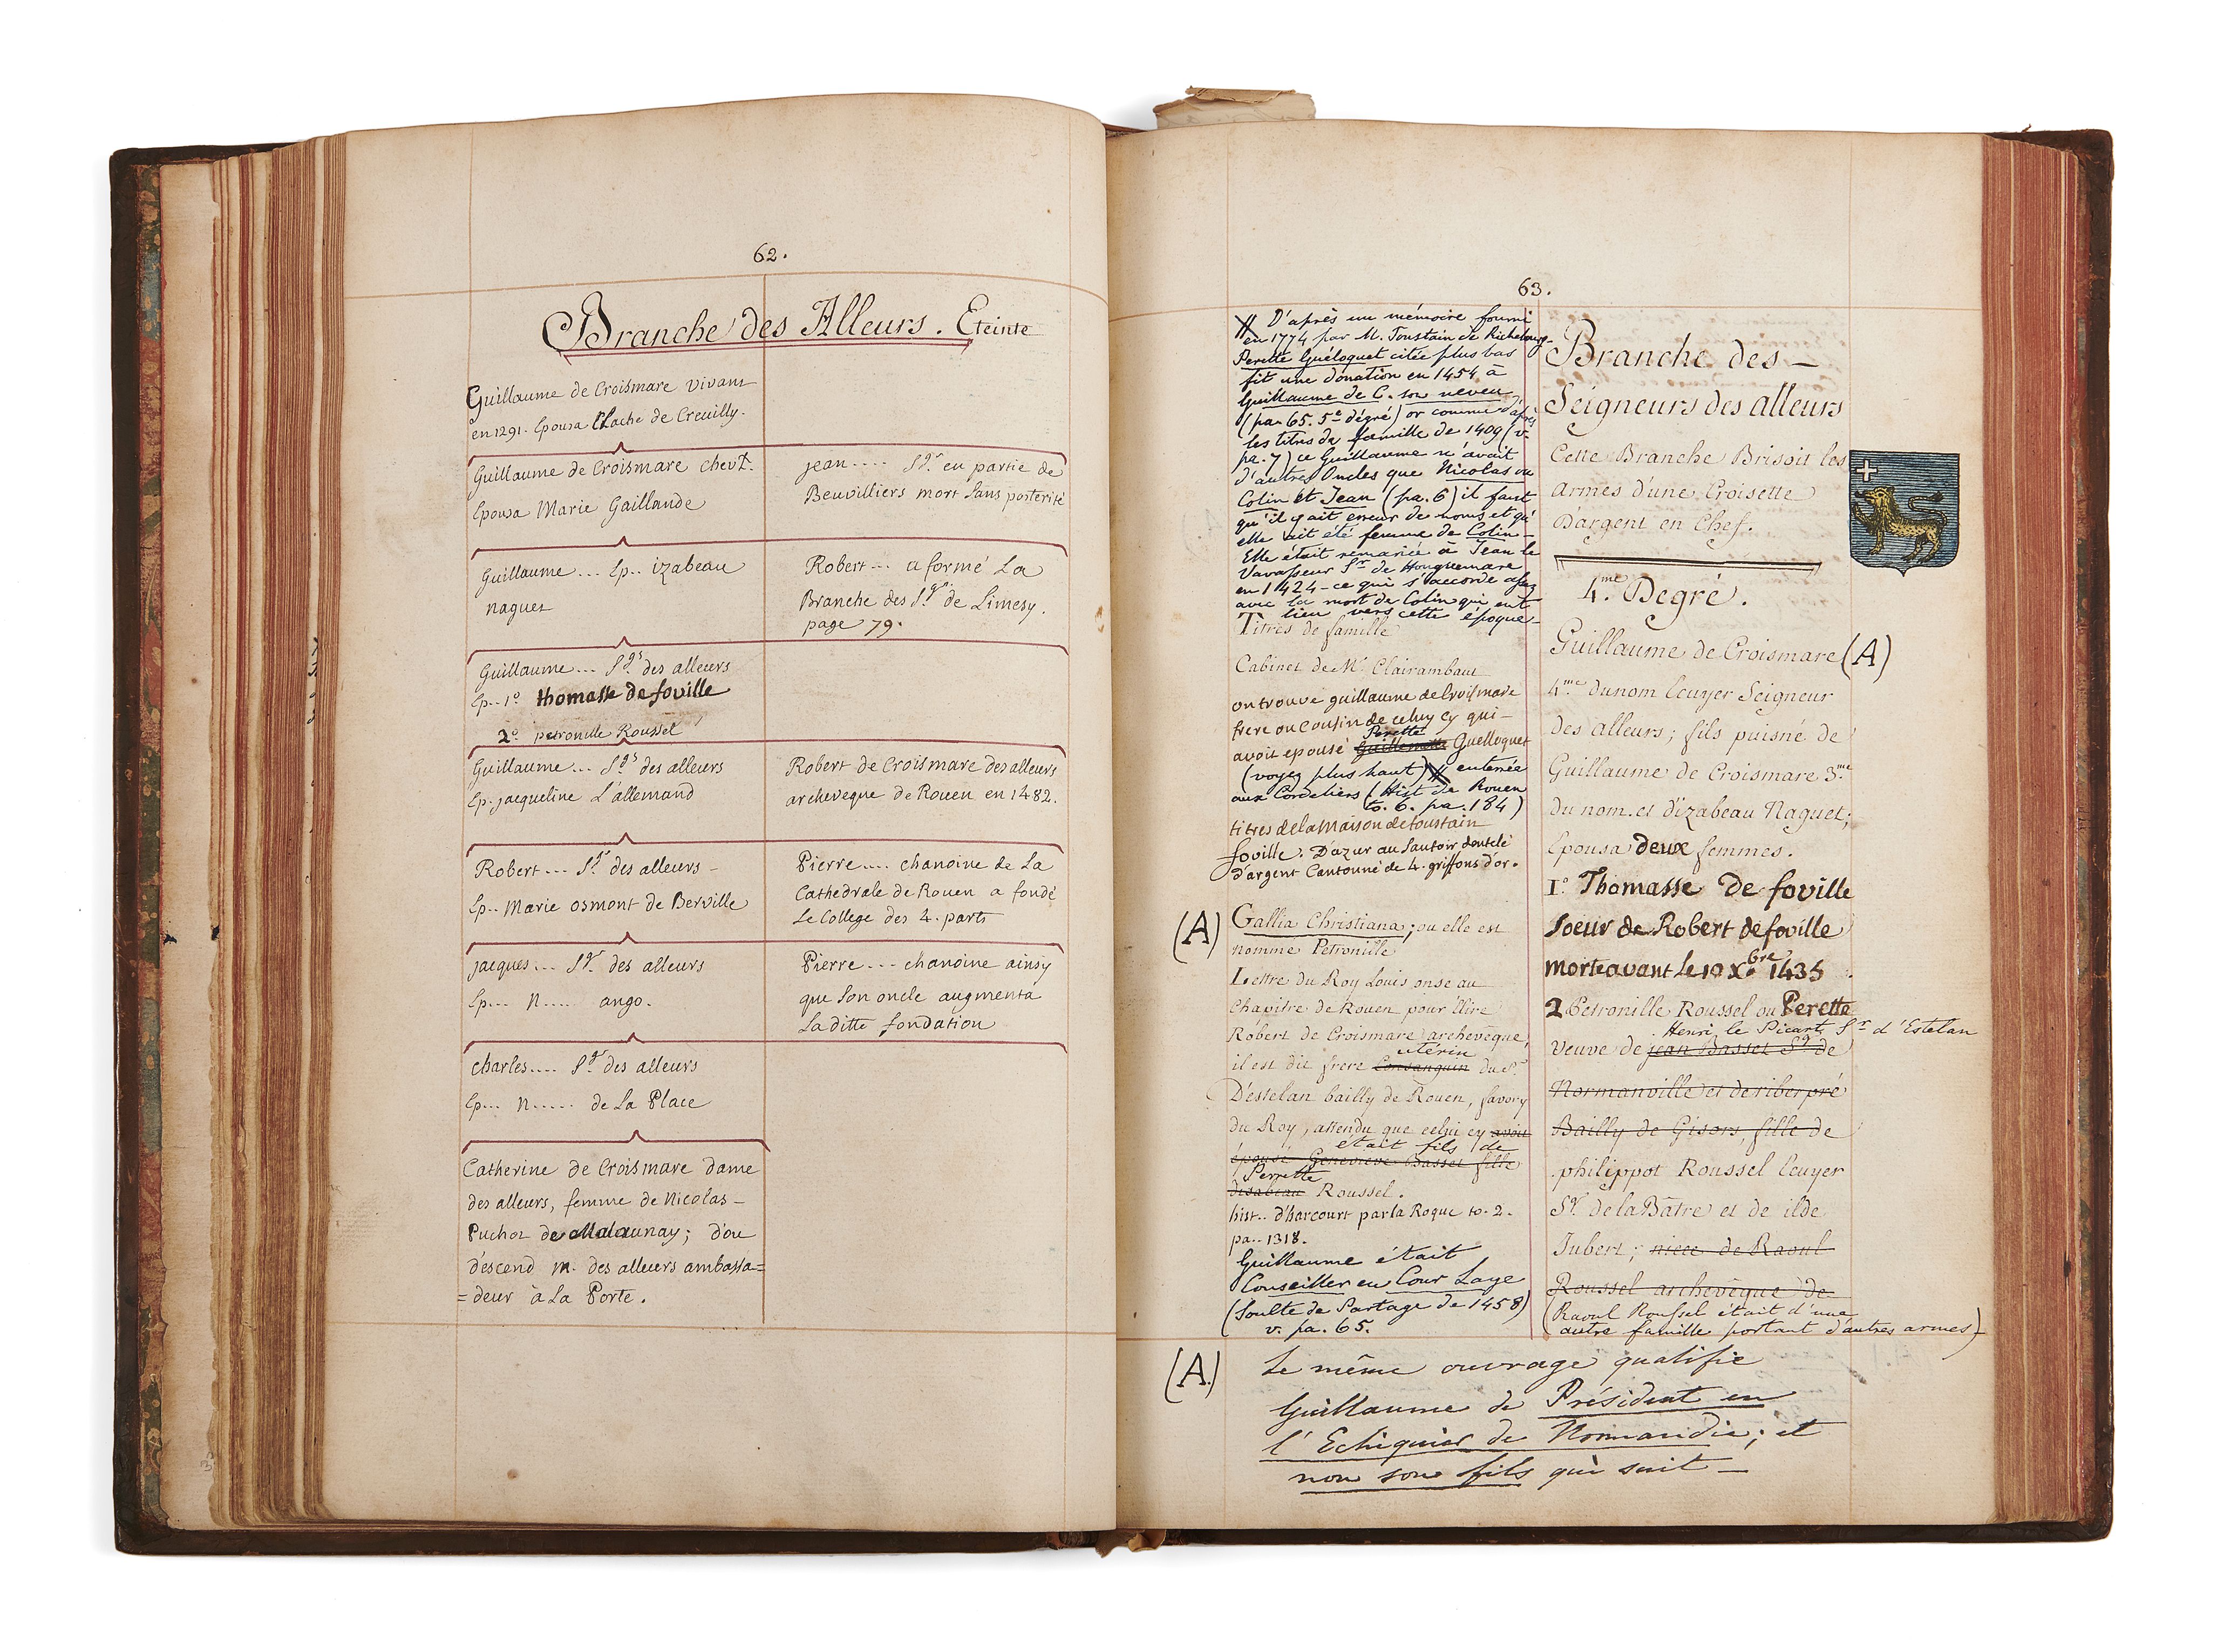 62.
Branche des Alleurs. Eteinte
Guillaume de Croismare vivant
en 1291. Epousa Clache de Creuilly.
Guillaume de Croismare chevr.
Epousa Marie Gaillande
jean.... Sgr. en partie de
Beuvilliers mort sans posterité
Guillaume... Ep.. izabeau
naguet
Robert... a formé La
Branche des Sgrs. de Limesy.
page 79.
Guillaume... Sgrs des alleurs
Ep.. 1º thomasse de foville
2º petronille Roussel
Guillaume... Sgrs des alleurs
Ep. jacqueline L'allemand
Robert de Croismare des alleurs
archeveque de Rouen en 1482.
Robert... Sgr. des alleurs -
Ep.. Marie osmont de Berville
Pierre.... chanoine de La
Cathedrale de Rouen a fondé
Le College des 4. parts
jacques... Sgr. des alleurs
Ep... N.... ango.
Pierre... chanoine ainsy
que son oncle augmenta
Laditte fondation
charles.... Sgr. des alleurs
Ep... N..... de La Place
Catherine de Croismare dame
des alleurs, femme de Nicolas-
Puchot de Malaunay; d'ou
descend M. des alleurs ambassa=
=deur à La Porte.
63.
D'après un mémoire fourni
en 1774 par M. Toustain de Richebourg-
Perette Guéloquet citée plus bas
fit une donation en 1454 à
Guillaume de C. son neveu
(pa. 65. 5e dégré) or comme d'après
les titres de famille de 1409 (v.
pa. 7) ce Guillaume n'avait
d'autres Oncles que Nicolas ou
Colin et Jean (pa. 6) il faut
qu'il y ait erreur de noms et qu'
elle ait été femme de Colin-
Elle était remariée à Jean le
Vavasseur Sr de Hongremare
en 1424 - ce qui s'accorde assez
avec la mort de Colin qui eut
lieu vers cette époque-
Titres de famille
Cabinet de Mr. Clairambaut
on trouve guillaume de Croismare
frere ou cousin de celuy cy qui-
Perette
avoit epousé Guillemette Guelloquet
(voyez plus haut) enterrée
aux Cordeliers (Hist de Rouen
to. 6. pa. 184)
titres de la Maison de toustain
foville. D'azur au Sautoir dentelé
d'argent Cantonné de 4. griffons d'or.
(A) Gallia Christiana; ou elle est
nommé Petronille
Lettre du Roy Louis onse au
Chapitre de Rouen pour Elire
Robert de Croismare archevêque,
utérin
il est dit frere Consanguin du Sr.
D'estelan bailly de Rouen, favory
du Roy, attendu que celui cy avoit
etait fils de
épousé Genevieve Basset fille
Perrette
disabeau Roussel.
hist.. d'harcourt par la Roque to. 2.
pa.. 1318.
Guillaume était
Conseiller en Cour Laye
(Soulte de Partage de 1458)
v. pa. 65.
Branche des-
Seigneurs des alleurs
Cette Branche Brisoit les
armes d'une Croisette
D'argent en Chef.
4.me Degré.
Guillaume de Croismare (A)
4.me du nom Ecuyer Seigneur
des alleurs; fils puisné de
Guillaume de Croismare 3.me
du nom. et d'izabeau Naguet;
Epousa deux femmes.
1º. Thomasse De foville
Soeur de Robert de foville
morte avant le 10 Xbre 1435.
2 Petronille Roussel ou Perette
Henri le Picart Sr d'Estelan
Veuve de jean Basset Sgr de
Normanville et de riberpré
Bailly de Gisors, fille de
philippot Roussel Ecuyer
Sgr. de la Bâtre et de ilde
Jubert; niece de Raoul
Roussel archevêque de
(Raoul Roussel était d'une
autre famille portant d'autres armes)
(A.) Le même ouvrage qualifie
Guillaume de Président en
l'Echiquier de Normandie; et
non son fils qui suit-